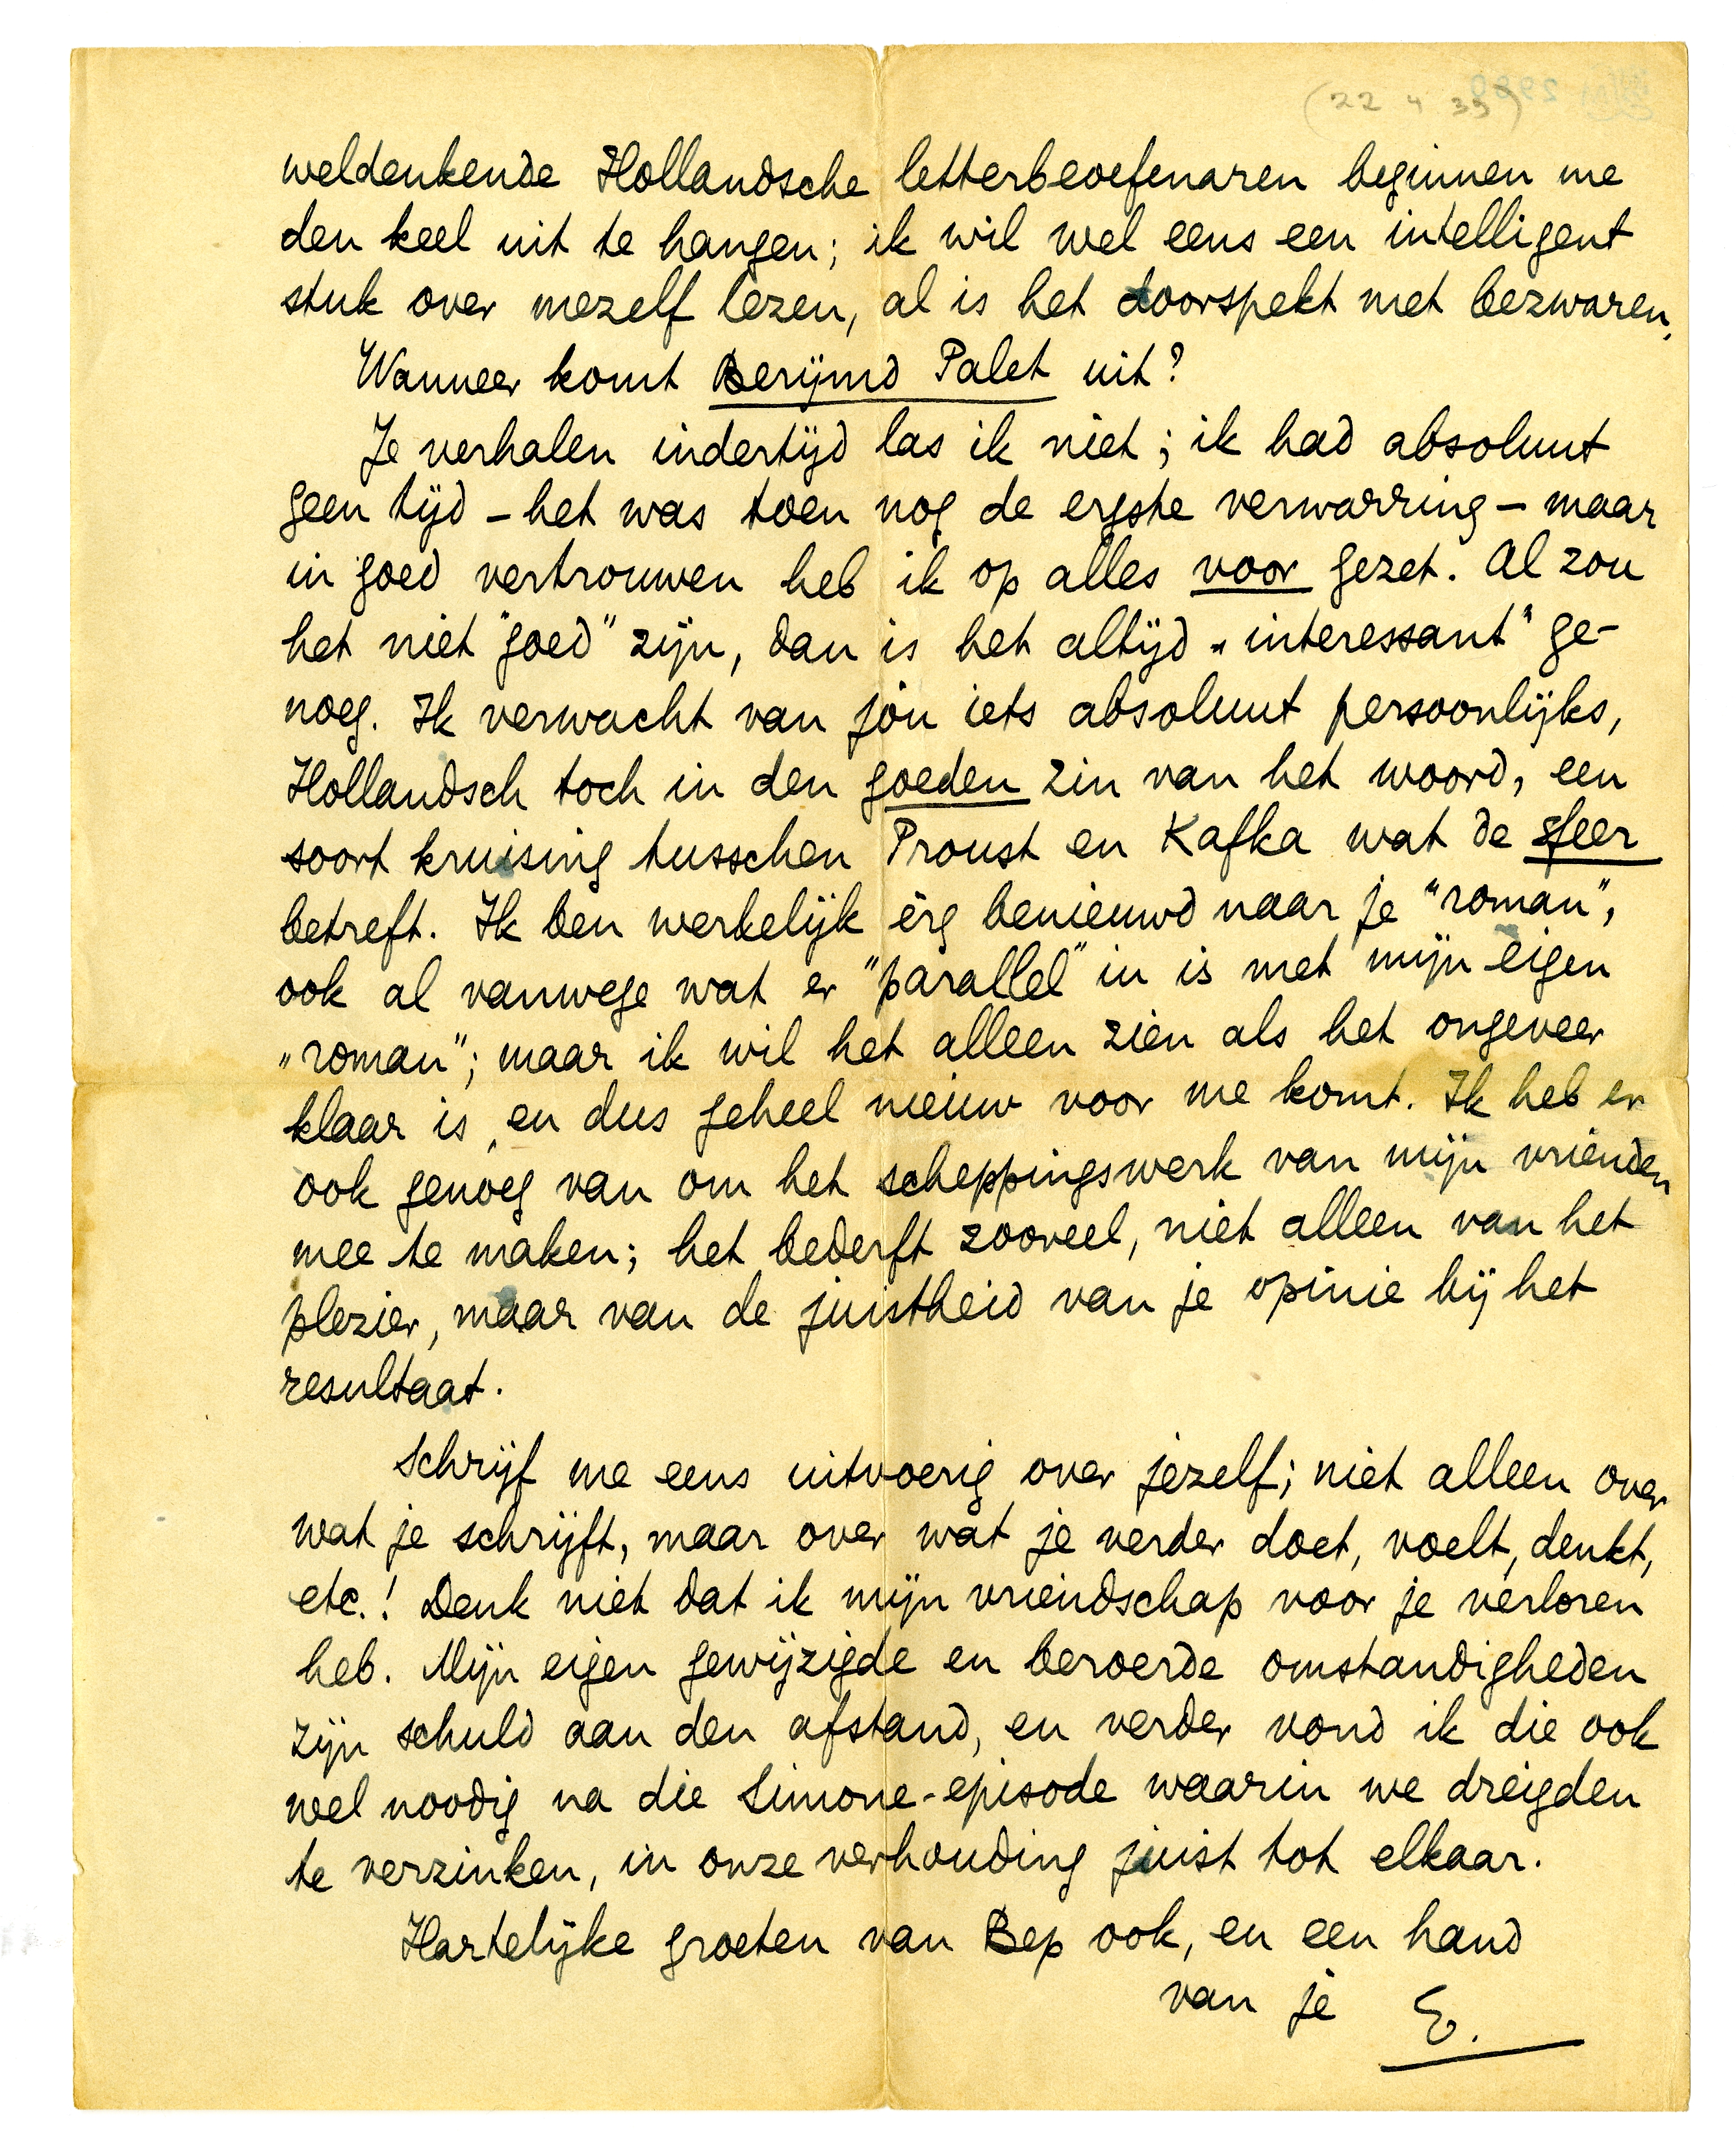 (22 4 35)
weldenkende Hollandsche letterbeoefenaren beginnen me
den keel uit te hangen; ik wil wel eens een intelligent
stuk over mezelf lezen, al is het doorspekt met bezwaren.
Wanneer komt Berijmd Palet uit?
Je verhalen indertijd las ik niet; ik had absoluut
geen tijd – het was toen nog de ergste verwarring – maar
in goed vertrouwen heb ik op alles voor gezet. Al zou
het niet "goed" zijn, dan is het altijd „interessant" ge-
noeg. Ik verwacht van jòu iets absoluut persoonlijks,
Hollandsch toch in den goeden zin van het woord, een
soort kruising tusschen Proust en Kafka wat de sfeer
betreft. Ik ben werkelijk èrg benieuwd naar je "roman",
ook al vanwege wat er "parallel" in is met mijn eigen
„roman"; maar ik wil het alleen zien als het ongeveer
klaar is, en dus geheel nieuw voor me komt. Ik heb er
ook genoeg van om het scheppingswerk van mijn vrienden
mee te maken; het bederft zooveel, niet alleen van het
plezier, maar van de juistheid van je opinie bij het
resultaat.
Schrijf me eens uitvoerig over jezelf; niet alleen over
wat je schrijft, maar over wat je verder doet, voelt, denkt,
etc.! Denk niet dat ik mijn vriendschap voor je verloren
heb. Mijn eigen gewijzigde en beroerde omstandigheden
zijn schuld aan den afstand, en verder vond ik die ook
wel noodig na die Simone-episode waarin we dreigden
te verzinken, in onze verhouding juist tot elkaar.
Hartelijke groeten van Bep ook, en een hand
van je E.